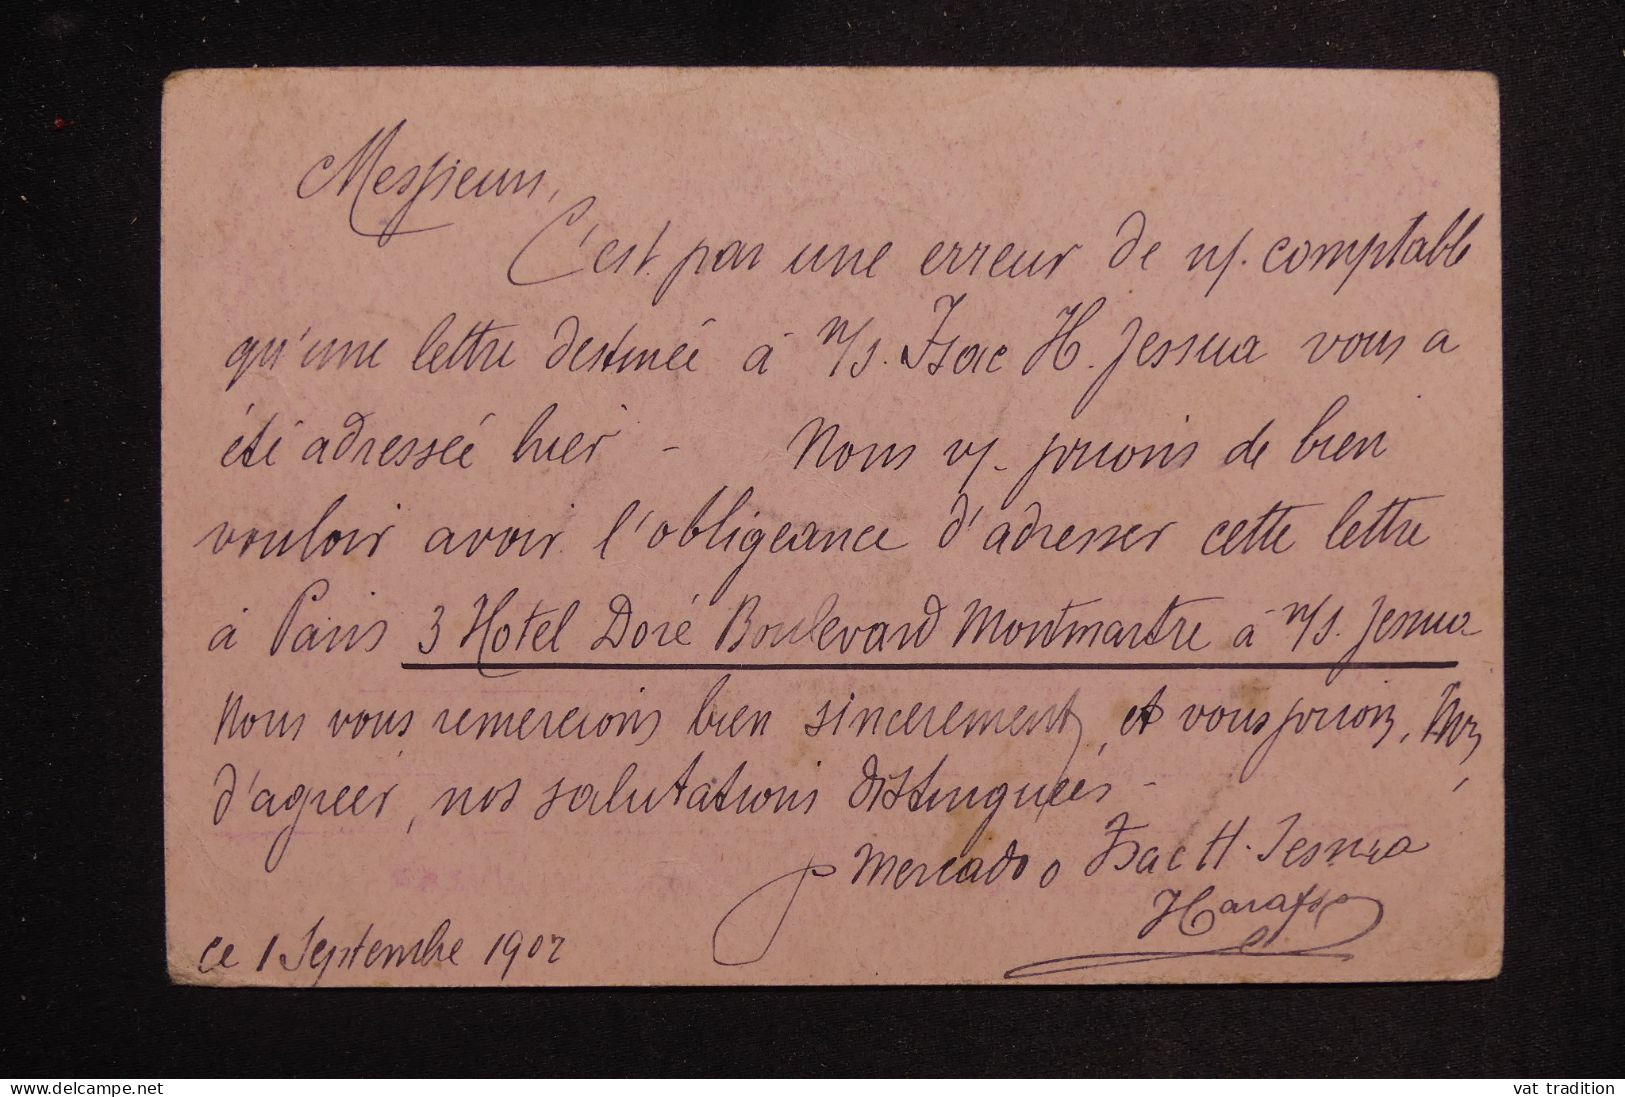 Messieurs,
C'est par une erreur de n/. comptable
qu'une lettre destinée à n/s. Isac H. Jessua vous a
été adressée hier - Nous v/. prions de bien
vouloir avoir l'obligeance d'adresser cette lettre
à Paris 3 Hotel Doré Boulevard Montmartre à n/s. Jessua
Nous vous remercions bien sincerement, et vous prions, Mrs,
d'agreer, nos salutations distinguées -
p Mercado o Isac H. Jessua
ce 1 Septembre 1902
vat tradition
www.delcampe.net